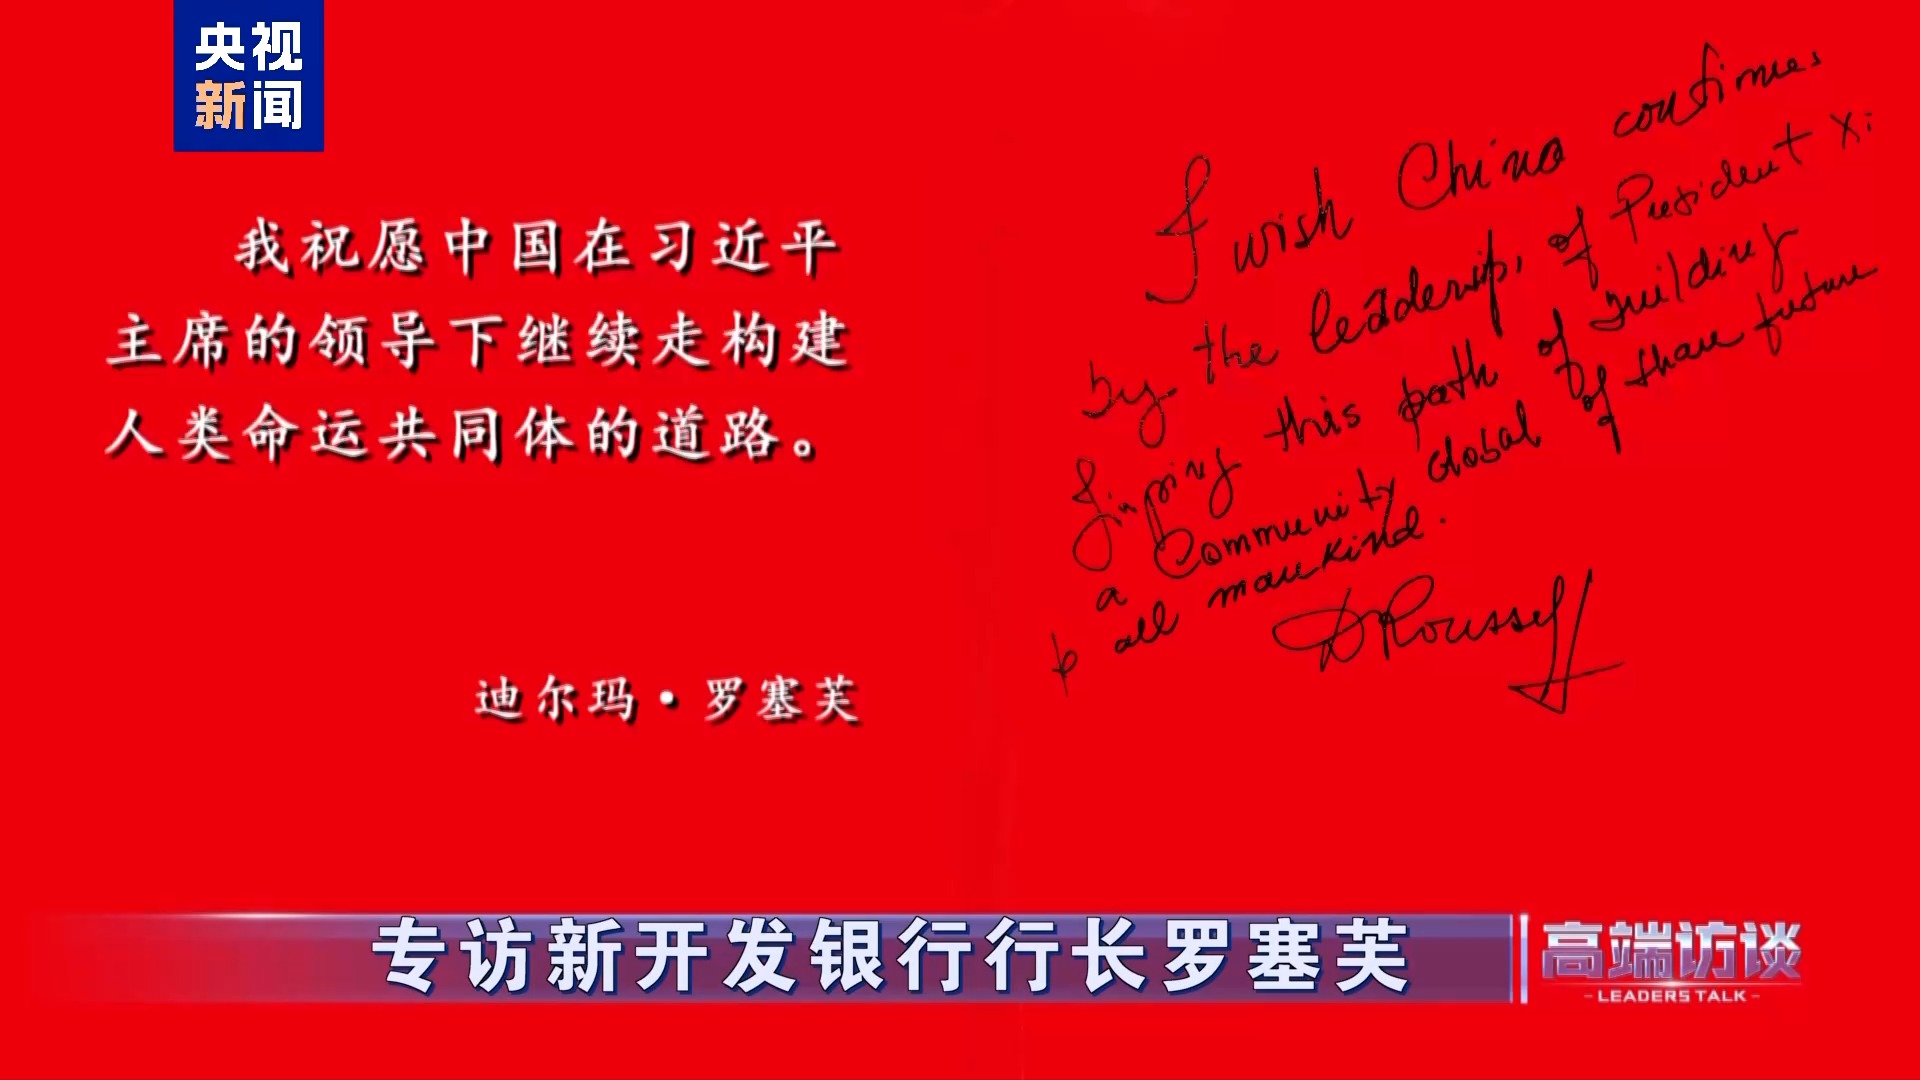 央视
新闻
我祝愿中国在习近平
主席的领导下继续走构建
人类命运共同体的道路。
迪尔玛·罗塞芙
I wish China continues
by the leadership, of President Xi
Jinping this path of building
a Community Global of share future
to all mankind.
DRousseff
专访新开发银行行长罗塞芙
高端访谈
-LEADERS TALK-